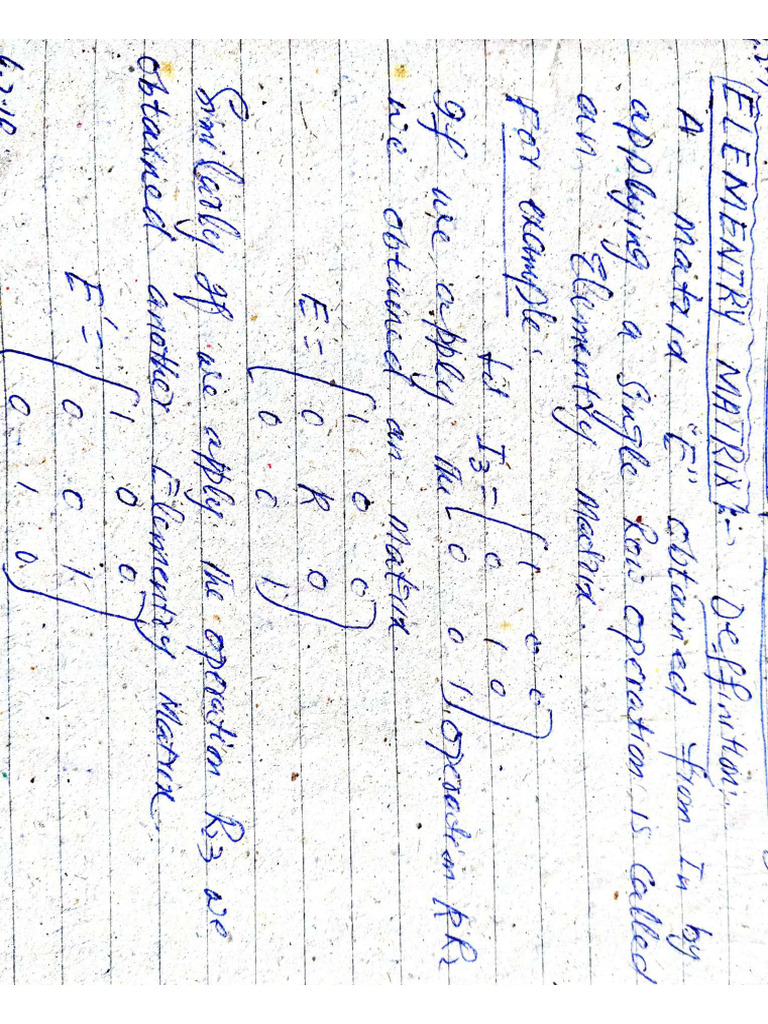 ELEMENTRY MATRIX :- Deffinition:
A matrix "E" obtained from In by
applying a Single Row operation is Called
an Elementry Matrix.
For example:
let I3 = ( 1 0 0
0 1 0
0 0 1 )
If we apply the operation KR2
we obtained an matrix.
E = ( 1 0 0
0 K 0
0 0 1 )
Similarly If we apply the operation R23 we
obtained another Elementry Matrix.
E' = ( 1 0 0
0 0 1
0 1 0 )